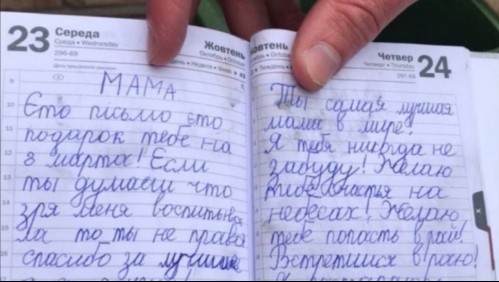 23 Середа
Среда • Wednesday
296-69
Жовтень
Октябрь • October
9
МАМА
Єто письмо єто
подарок тебе на
8 марта! Если
ты думаєш что
зря меня воспитыва
ла то ты не права
спасибо за лучшие
Жовтень
Октябрь • October
Четвер
Четверг • Thursday
24
Ты самая лучшая
мама в мире!
Я тебя никогда не
забуду! Желаю
тебе счастья на
небесах! Желаю
тебе попасть в рай!
Встретимся в раю!